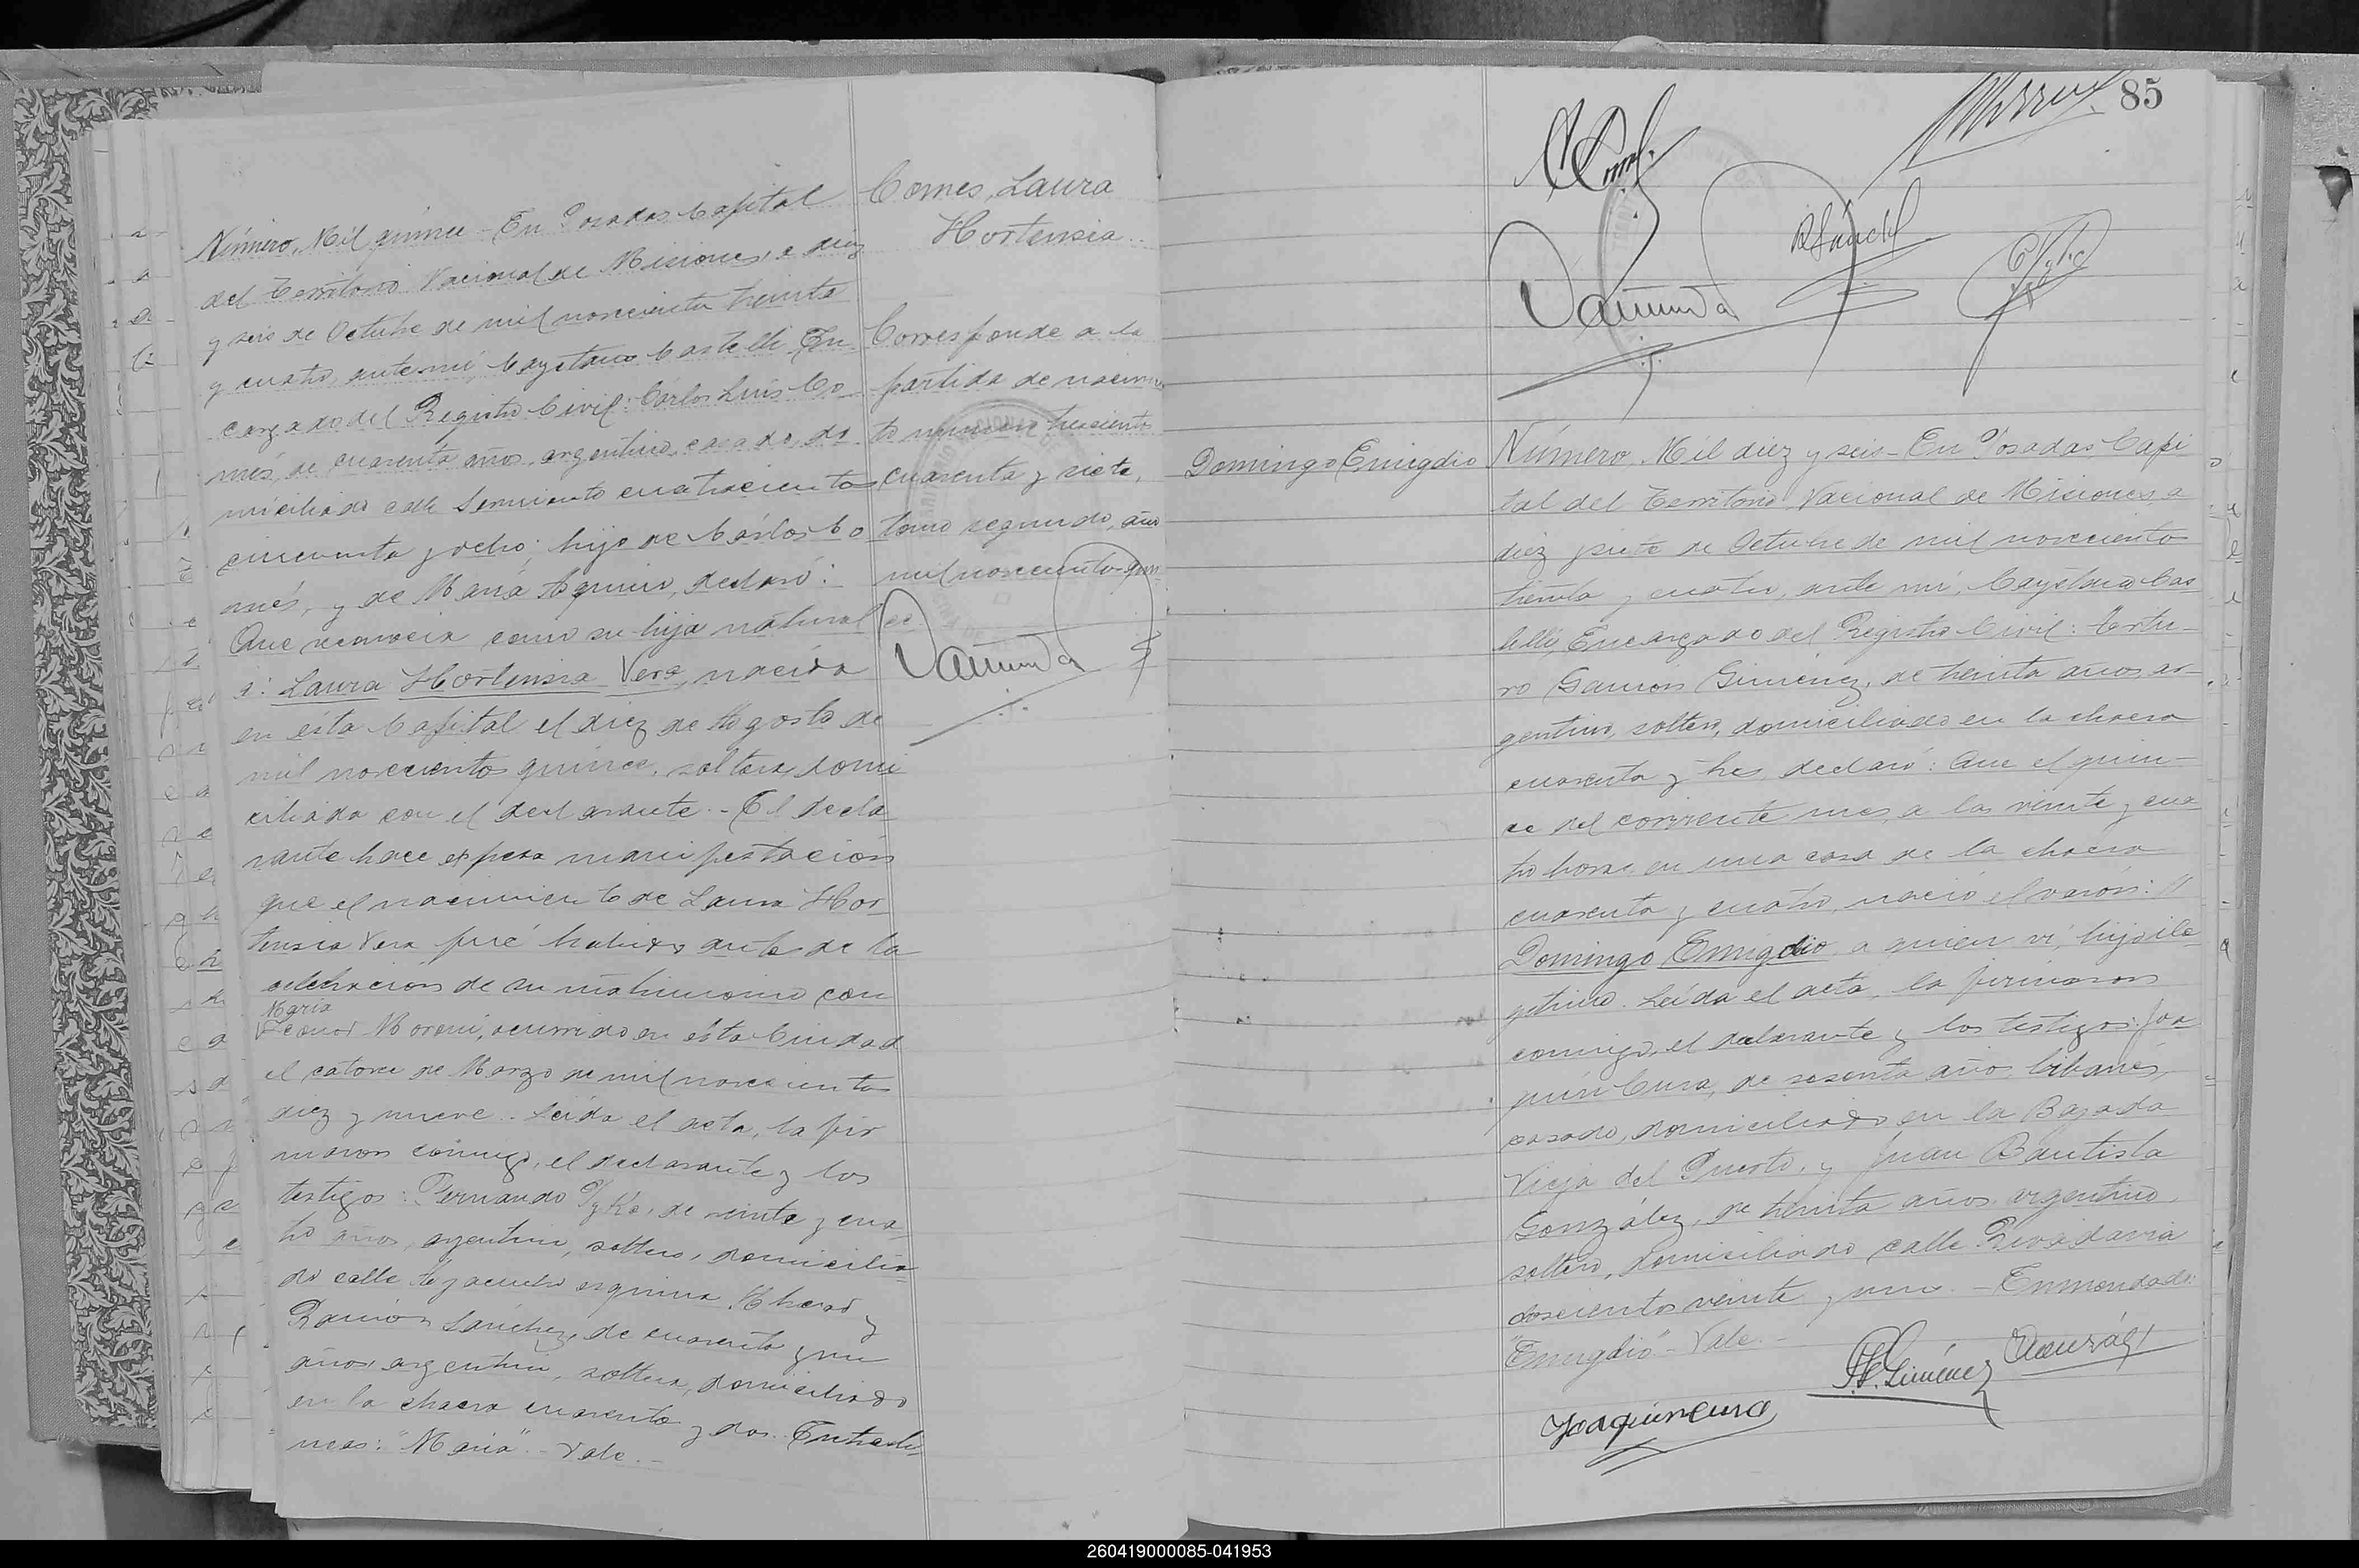 Número, Mil quince - En Posadas Capital
del Territorio Nacional de Misiones, a diez
y seis de Octubre de mil novecientos treinta
y cuatro, ante mí, Cayetano Castelli, En
cargado del Registro Civil: Carlos Luis Co
més, de cuarenta años, argentino, casado, do
miciliado calle Sarmiento cuatrocientos
cincuenta y ocho; hijo de Carlos Co
més, y de María Aquino, declaró:
Que reconocía como su hija natural
a: Laura Hortensia Vera, nacida
en esta Capital el diez de Agosto de
mil novecientos quince, soltera, domi
ciliada con el declarante. - El decla
rante hace expresa manifestación
que el nacimiento de Laura Hor
tensia Vera fué habido antes de la
celebración de su matrimonio con
María
Leonor Moreni, ocurrido en ésta Ciudad
el catorce de Marzo de mil novecientos
diez y nueve. Leída el acta, la fir
maron conmigo, el declarante y los
testigos: Fernando Tyka, de veinte y cua
tro años, argentino, soltero, domicilia
do calle Ayacucho esquina Alvear y
Ramón Sánchez, de cuarenta y un
años, argentino, soltero, domiciliado
en la chacra cuarenta y dos. Entrelí-
neas: "María" - Vale. -
Comes, Laura
Hortensia.
Corresponde a la
partida de nacimien
to número trescientos
cuarenta y siete,
tomo segundo, año
mil novecientos quin
ce.
85
RSánchez
Domingo Emigdio
Número, Mil diez y seis - En Posadas Capi
tal del Territorio Nacional de Misiones, a
diez y siete de Octubre de mil novecientos
treinta y cuatro, ante mí, Cayetano Cas
telli, Encargado del Registro Civil: Cástu-
ro Gamón Giménez, de treinta años, ar-
gentino, soltero, domiciliado en la chacra
cuarenta y tres, declaró: Que el quin-
ce del corriente mes, a las veinte y cua
tro horas, en una casa de la chacra
cuarenta y cuatro, nació el varón: //
Domingo Emigdio, a quien ví, hijo ile
gítimo. Leída el acta, la firmaron
conmigo, el declarante y los testigos: Joa
quín Cura, de sesenta años, libanés,
casado, domiciliado en la Bajada
Vieja del Puerto, y Juan Bautista
González, de treinta años, argentino,
soltero, domiciliado calle Rivadavia
doscientos veinte y uno. - Enmendado:
"Emigdio" - Vale. -
Giménez
Joaquin Cura
260419000085-041953